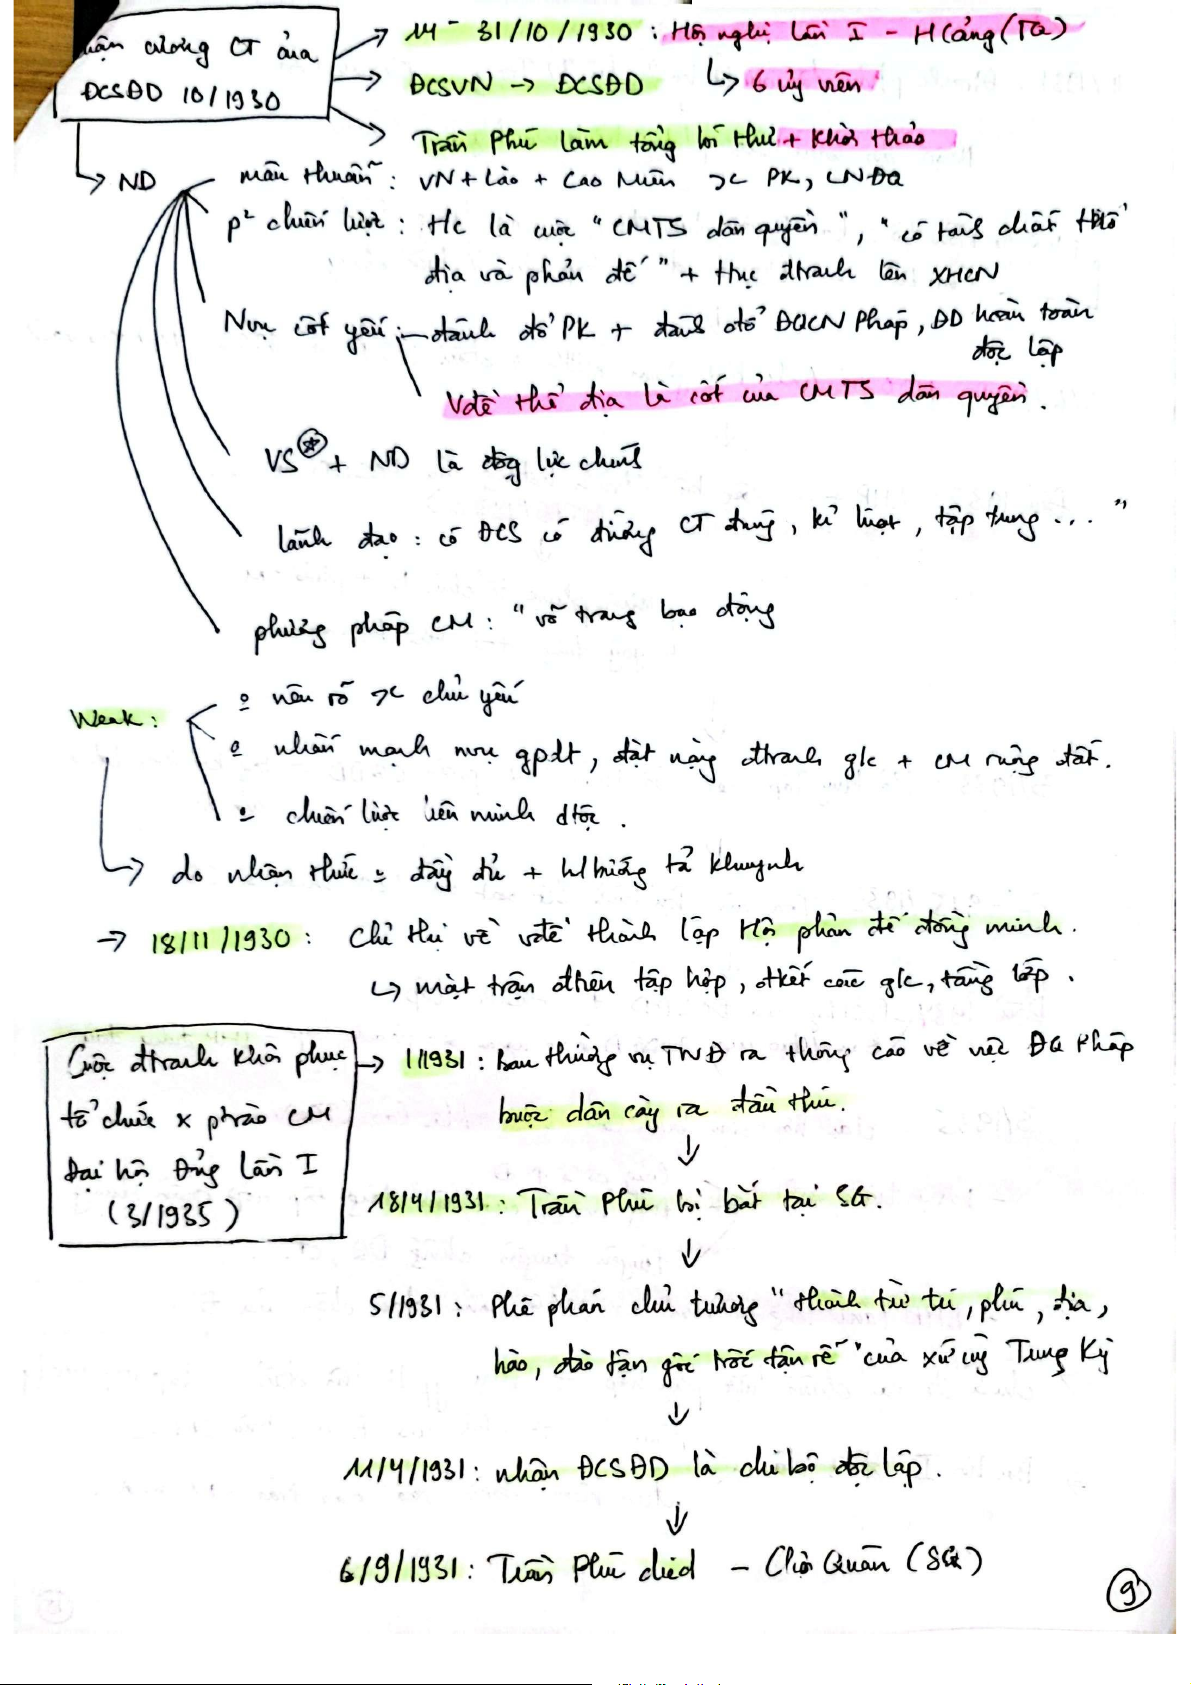 luận cương CT của
ĐCSĐD 10/1930
14 - 31/10/1930 : Hội nghị lần I - HCảng (TQ)
ĐCSVN → ĐCSĐD
↳ 6 ủy viên
Trần Phú làm tổng bí thư + khởi thảo
↳ ND
mâu thuẫn : VN + Lào + Cao Miên >< PK, CNĐQ
p² chiến lược : Hc là cuộc "CMTS dân quyền", "có tính chất thổ
địa và phản đế" + tục đtranh lên XHCN
Nvụ cốt yếu : đánh đổ PK + đánh đổ ĐQCN Pháp, ĐD hoàn toàn
độc lập
Vđề thổ địa là cốt của CMTS dân quyền.
VS + ND là động lực chính
lãnh đạo : có ĐCS có đường CT đúng, kỉ luật, tập trung ... "
phương pháp CM : "võ trang bạo động
Weak :
o nêu rõ >< chủ yếu
o nhấn mạnh nvụ gpdt, đặt nặng đtranh g/c + CM ruộng đất.
o chiến lược liên minh dtộc.
↳ do nhận thức o đầy đủ + k/hướng tả khuynh
→ 18/11/1930 : Chỉ thị về vđề thành lập Hội phản đế đồng minh.
↳ mặt trận đtiên tập hợp, đkết các g/c, tầng lớp.
Cuộc đtranh khôi phục
tổ chức x ptrào CM
Đại hội Đảng lần I
(3/1935)
→ 1/1931 : Ban thường vụ TWĐ ra thông cáo về việc ĐQ Pháp
buộc dân cày ra đầu thú.
↓
18/4/1931 : Trần Phú bị bắt tại SG.
↓
5/1931 : Phê phán chủ trương "thanh trừ trí, phú, địa,
hào, đào tận gốc trốc tận rễ" của xứ ủy Trung Kỳ
↓
11/4/1931 : nhận ĐCSĐD là chi bộ độc lập.
↓
6/9/1931 : Trần Phú died - Chợ Quán (SG)
9